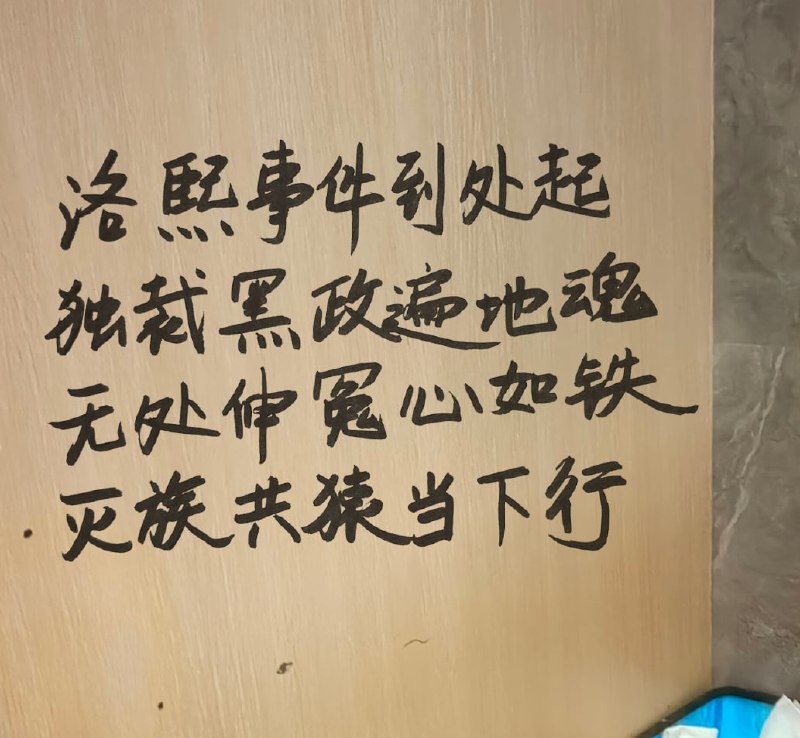 洛熙事件到处起
独裁黑政遍地魂
无处伸冤心如铁
灭族共猿当下行